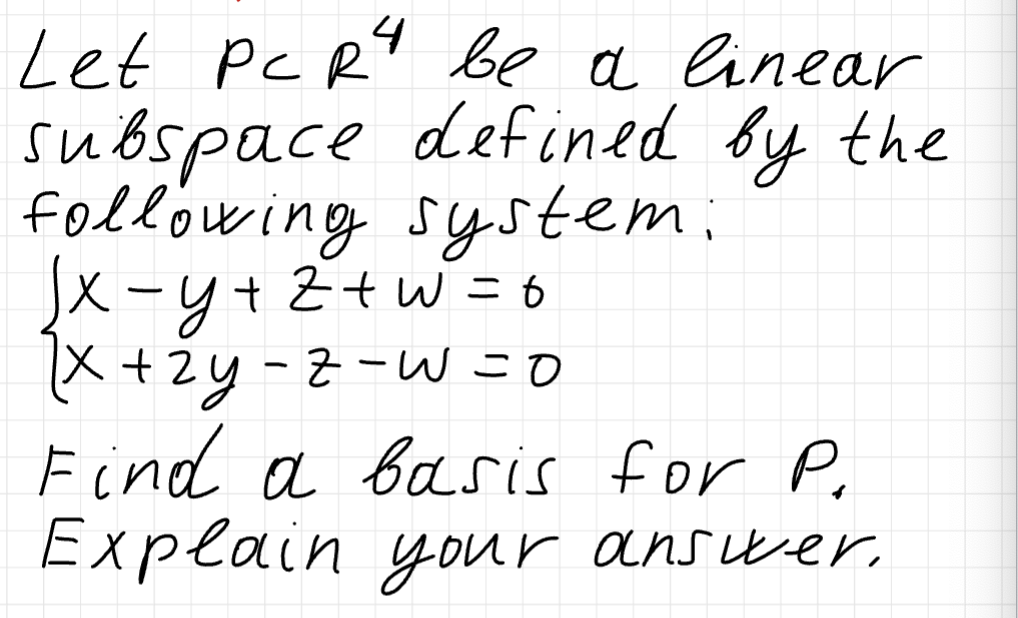 Let P ⊂ R⁴ be a linear
subspace defined by the
following system:
{x - y + z + w = 0
x + 2y - z - w = 0
Find a basis for P.
Explain your answer.